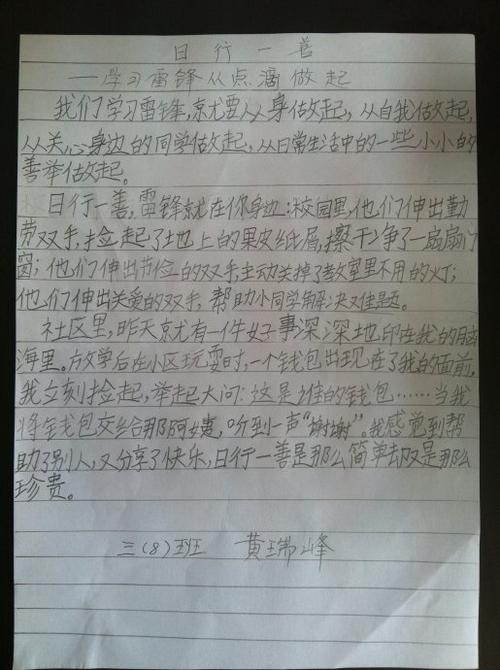 日行一善
——学习雷锋从点滴做起
我们学习雷锋,就要从身做起,从自我做起,
从关心身边的同学做起,从日常生活中的一些小小的
善举做起。
日行一善,雷锋就在你身边:校园里,他们伸出勤
劳双手,捡起了地上的果皮纸屑,擦干净了一扇扇门
窗;他们伸出节俭的双手,主动关掉了教室里不用的灯;
他们伸出关爱的双手,帮助小同学解决难题。
社区里,昨天就有一件好事深深地印在我的脑
海里。放学后在小区玩耍时,一个钱包出现在了我的面前,
我立刻捡起,举起大问:这是谁的钱包……当我
将钱包交给那阿姨,听到一声“谢谢”。我感觉到帮
助了别人,又分享了快乐,日行一善是那么简单却又是那么
珍贵。
三(8)班 黄瑞峰